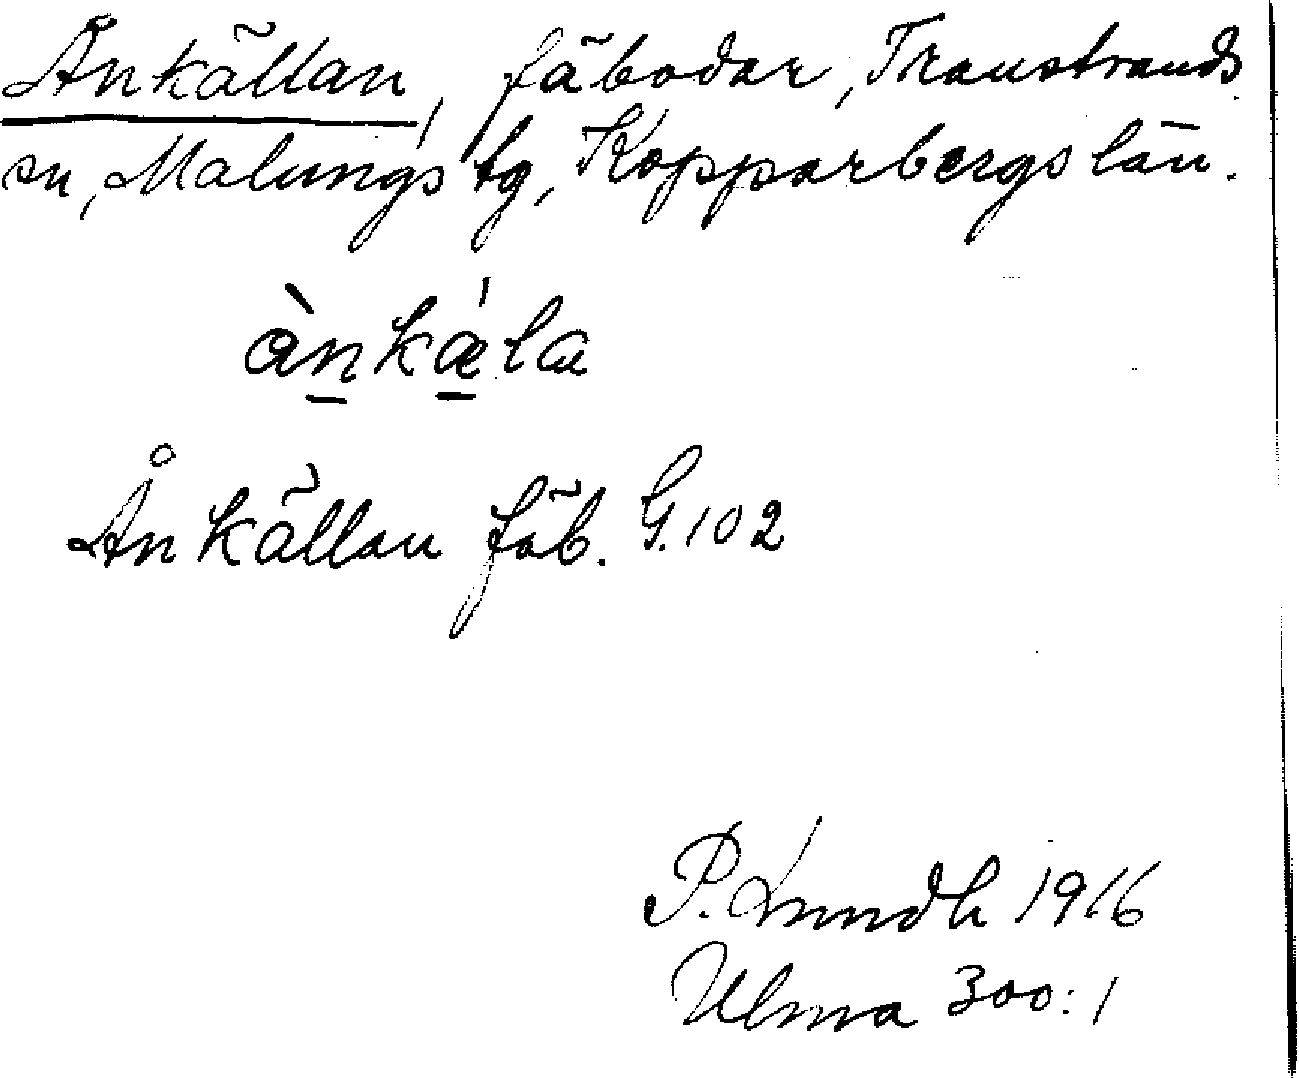 Ånkällan, fäbodar, Transtrands
sn, Malungs tg, Kopparbergs län.
ànkǽla
Ånkällan fäb. G. 102
P. Lundh 1916
Ulma 300:1